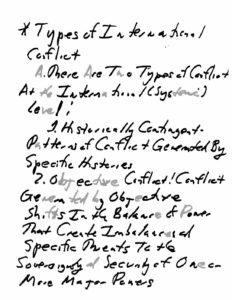 * Types of International
Conflict
A. There Are Two Types of Conflict
At the International (Systemic)
Level:
1. Historically Contingent-
Patterns of Conflict Generated By
Specific Histories
2. Objective Conflict: Conflict
Generated by Objective
Shifts In the Balance of Power
That Create Imbalances
Specific Threats To the
Sovereignty Security of One or
More Major Powers